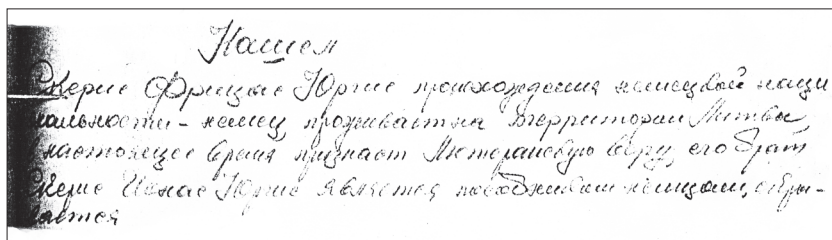 Кашем
Скерис Фрицас Юргис происхождения немецкой наци
нальности - немец, проживает на территории Литвы,
настоящее время признает Лютеранскую веру, его брат
Скерис Юргис является немцам, скры-
вается